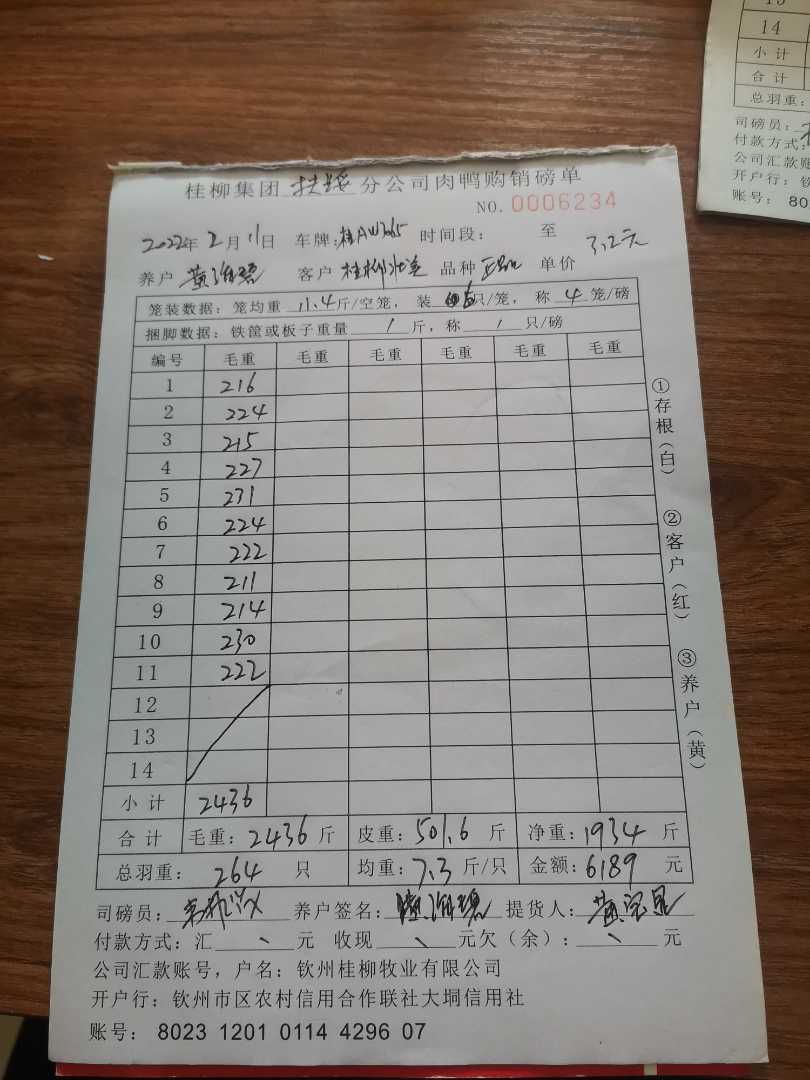 桂柳集团 扶绥 分公司肉鸭购销磅单
NO. 0006234
2022年 2月 11日 车牌: 时间段: 至
养户 客户 桂柳 品种 单价 3.2元
笼装数据: 笼均重 11.4 斤/空笼, 装 6 只/笼, 称 4 笼/磅
捆脚数据: 铁筐或板子重量 / 斤, 称 / 只/磅
编号 毛重 毛重 毛重 毛重 毛重 毛重
1 216
2 224
3 215
4 227
5 231
6 224
7 222
8 211
9 214
10 230
11 222
12
13
14
小计 2436
合计 毛重: 2436 斤 皮重: 501.6 斤 净重: 1934 斤
总羽重: 264 只 均重: 7.3 斤/只 金额: 6189 元
司磅员: 养户签名: 提货人:
付款方式: 汇 元 收现 元欠(余): 元
公司汇款账号, 户名: 钦州桂柳牧业有限公司
开户行: 钦州市区农村信用合作联社大垌信用社
账号: 8023 1201 0114 4296 07
①存根(白)
②客户(红)
③养户(黄)
14
小计
合计
总羽重:
司磅员:
付款方式:
公司汇款账
开户行: 钦
账号: 80